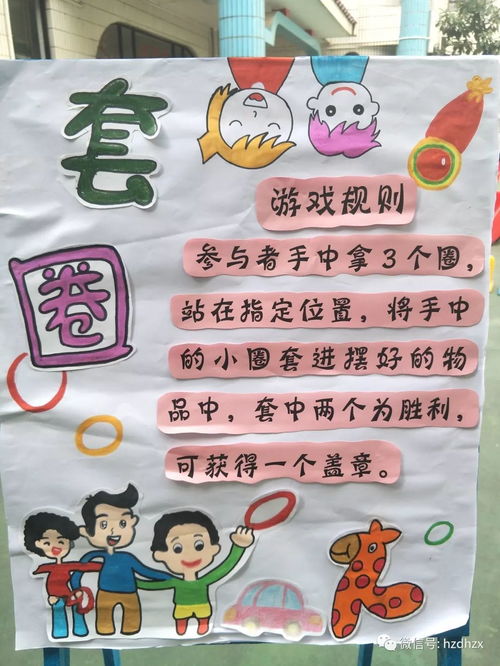 套
圈
游戏规则
参与者手中拿3个圈，
站在指定位置，将手中
的小圈套进摆好的物
品中，套中两个为胜利，
可获得一个盖章。
微信号: hzdhzx